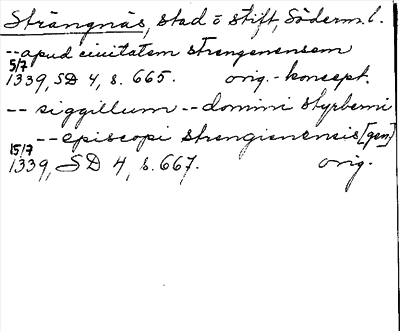 Strängnäs, stad o stift, Söderm. l.
-- apud ciuitatem strengenensem
5/7
1339, SD 4, s. 665. orig.-koncept.
-- siggillum -- domini styrberni
-- episcopi strengienensis [gen]
15/7
1339, SD 4, s. 667. orig.